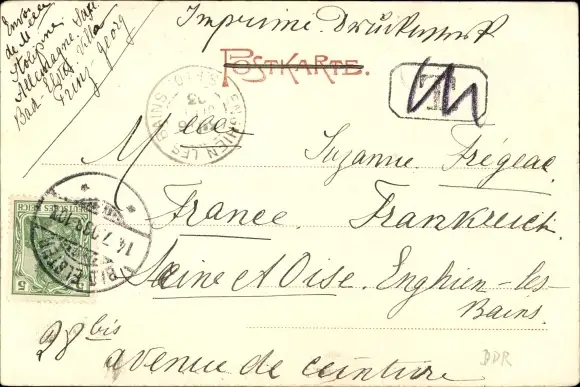 Envoi
de Melle
Stolypine
Allemagne, Saxe
Bad-Elster Villa
Prinz-Georg
Imprimé. Drucksache
POSTKARTE.
T
ENGHIEN LES BAINS
Melle Suzanne Frégeac
France. Frankreich
Seine et Oise. Enghien-les-
Bains.
28 bis
avenue de ceinture
DEUTSCHES REICH
5
BAD ELSTER
14.7.03
DDR